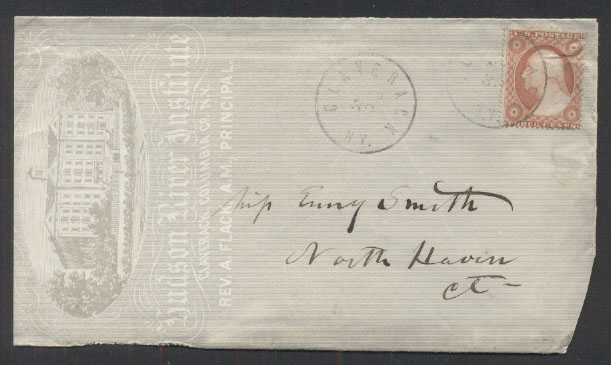 Hudson River Institute
CLAVERACK, COLUMBIA CO. N.Y.
REV. A. FLACK, A.M., PRINCIPAL.
CLAVERACK. N.Y.
U.S. POSTAGE
THREE CENTS
Miss Emy Smith
North Haven
Ct